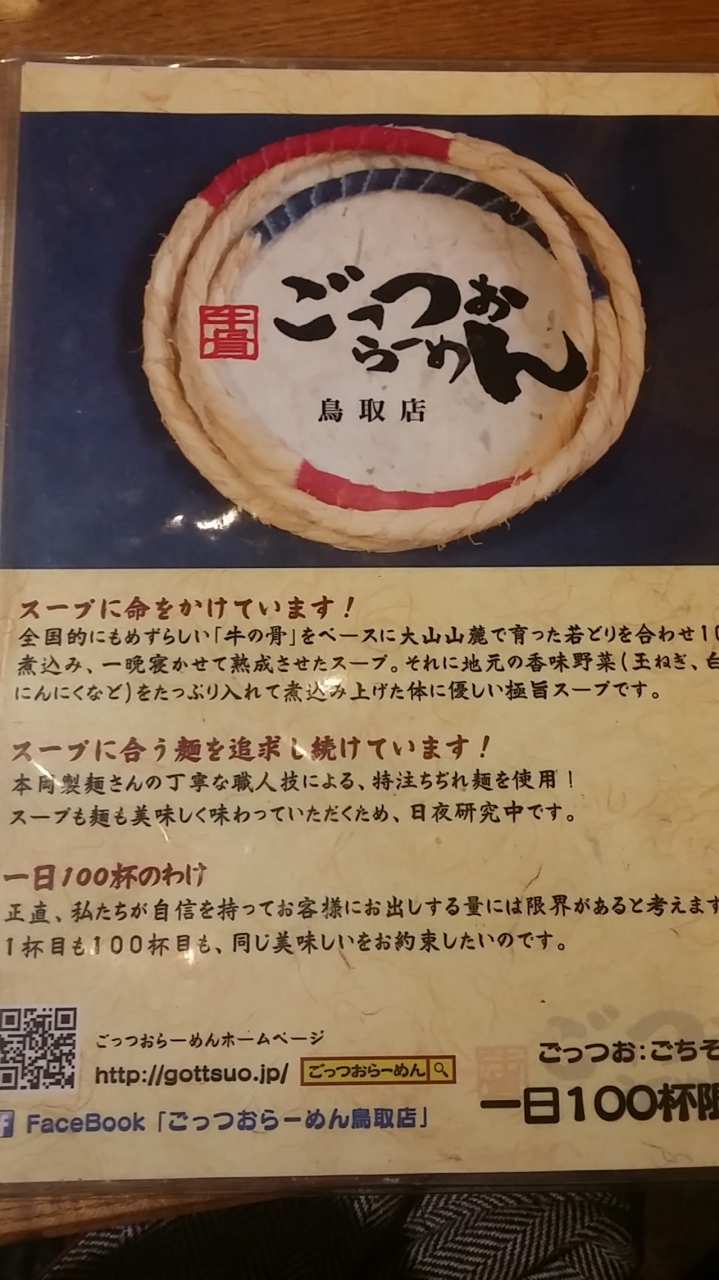 ごっつお
らーめん
牛骨
鳥取店
スープに命をかけています！
全国的にもめずらしい「牛の骨」をベースに大山山麓で育った若どりを合わせ1
煮込み、一晩寝かせて熟成させたスープ。それに地元の香味野菜(玉ねぎ、白
にんにくなど)をたっぷり入れて煮込み上げた体に優しい極旨スープです。
スープに合う麺を追求し続けています！
本岡製麺さんの丁寧な職人技による、特注ちぢれ麺を使用！
スープも麺も美味しく味わっていただくため、日夜研究中です。
一日100杯のわけ
正直、私たちが自信を持ってお客様にお出しする量には限界があると考えます
1杯目も100杯目も、同じ美味しいをお約束したいのです。
ごっつおらーめんホームページ
http://gottsuo.jp/ ごっつおらーめん
FaceBook「ごっつおらーめん鳥取店」
ごっつお：ごちそ
一日100杯限